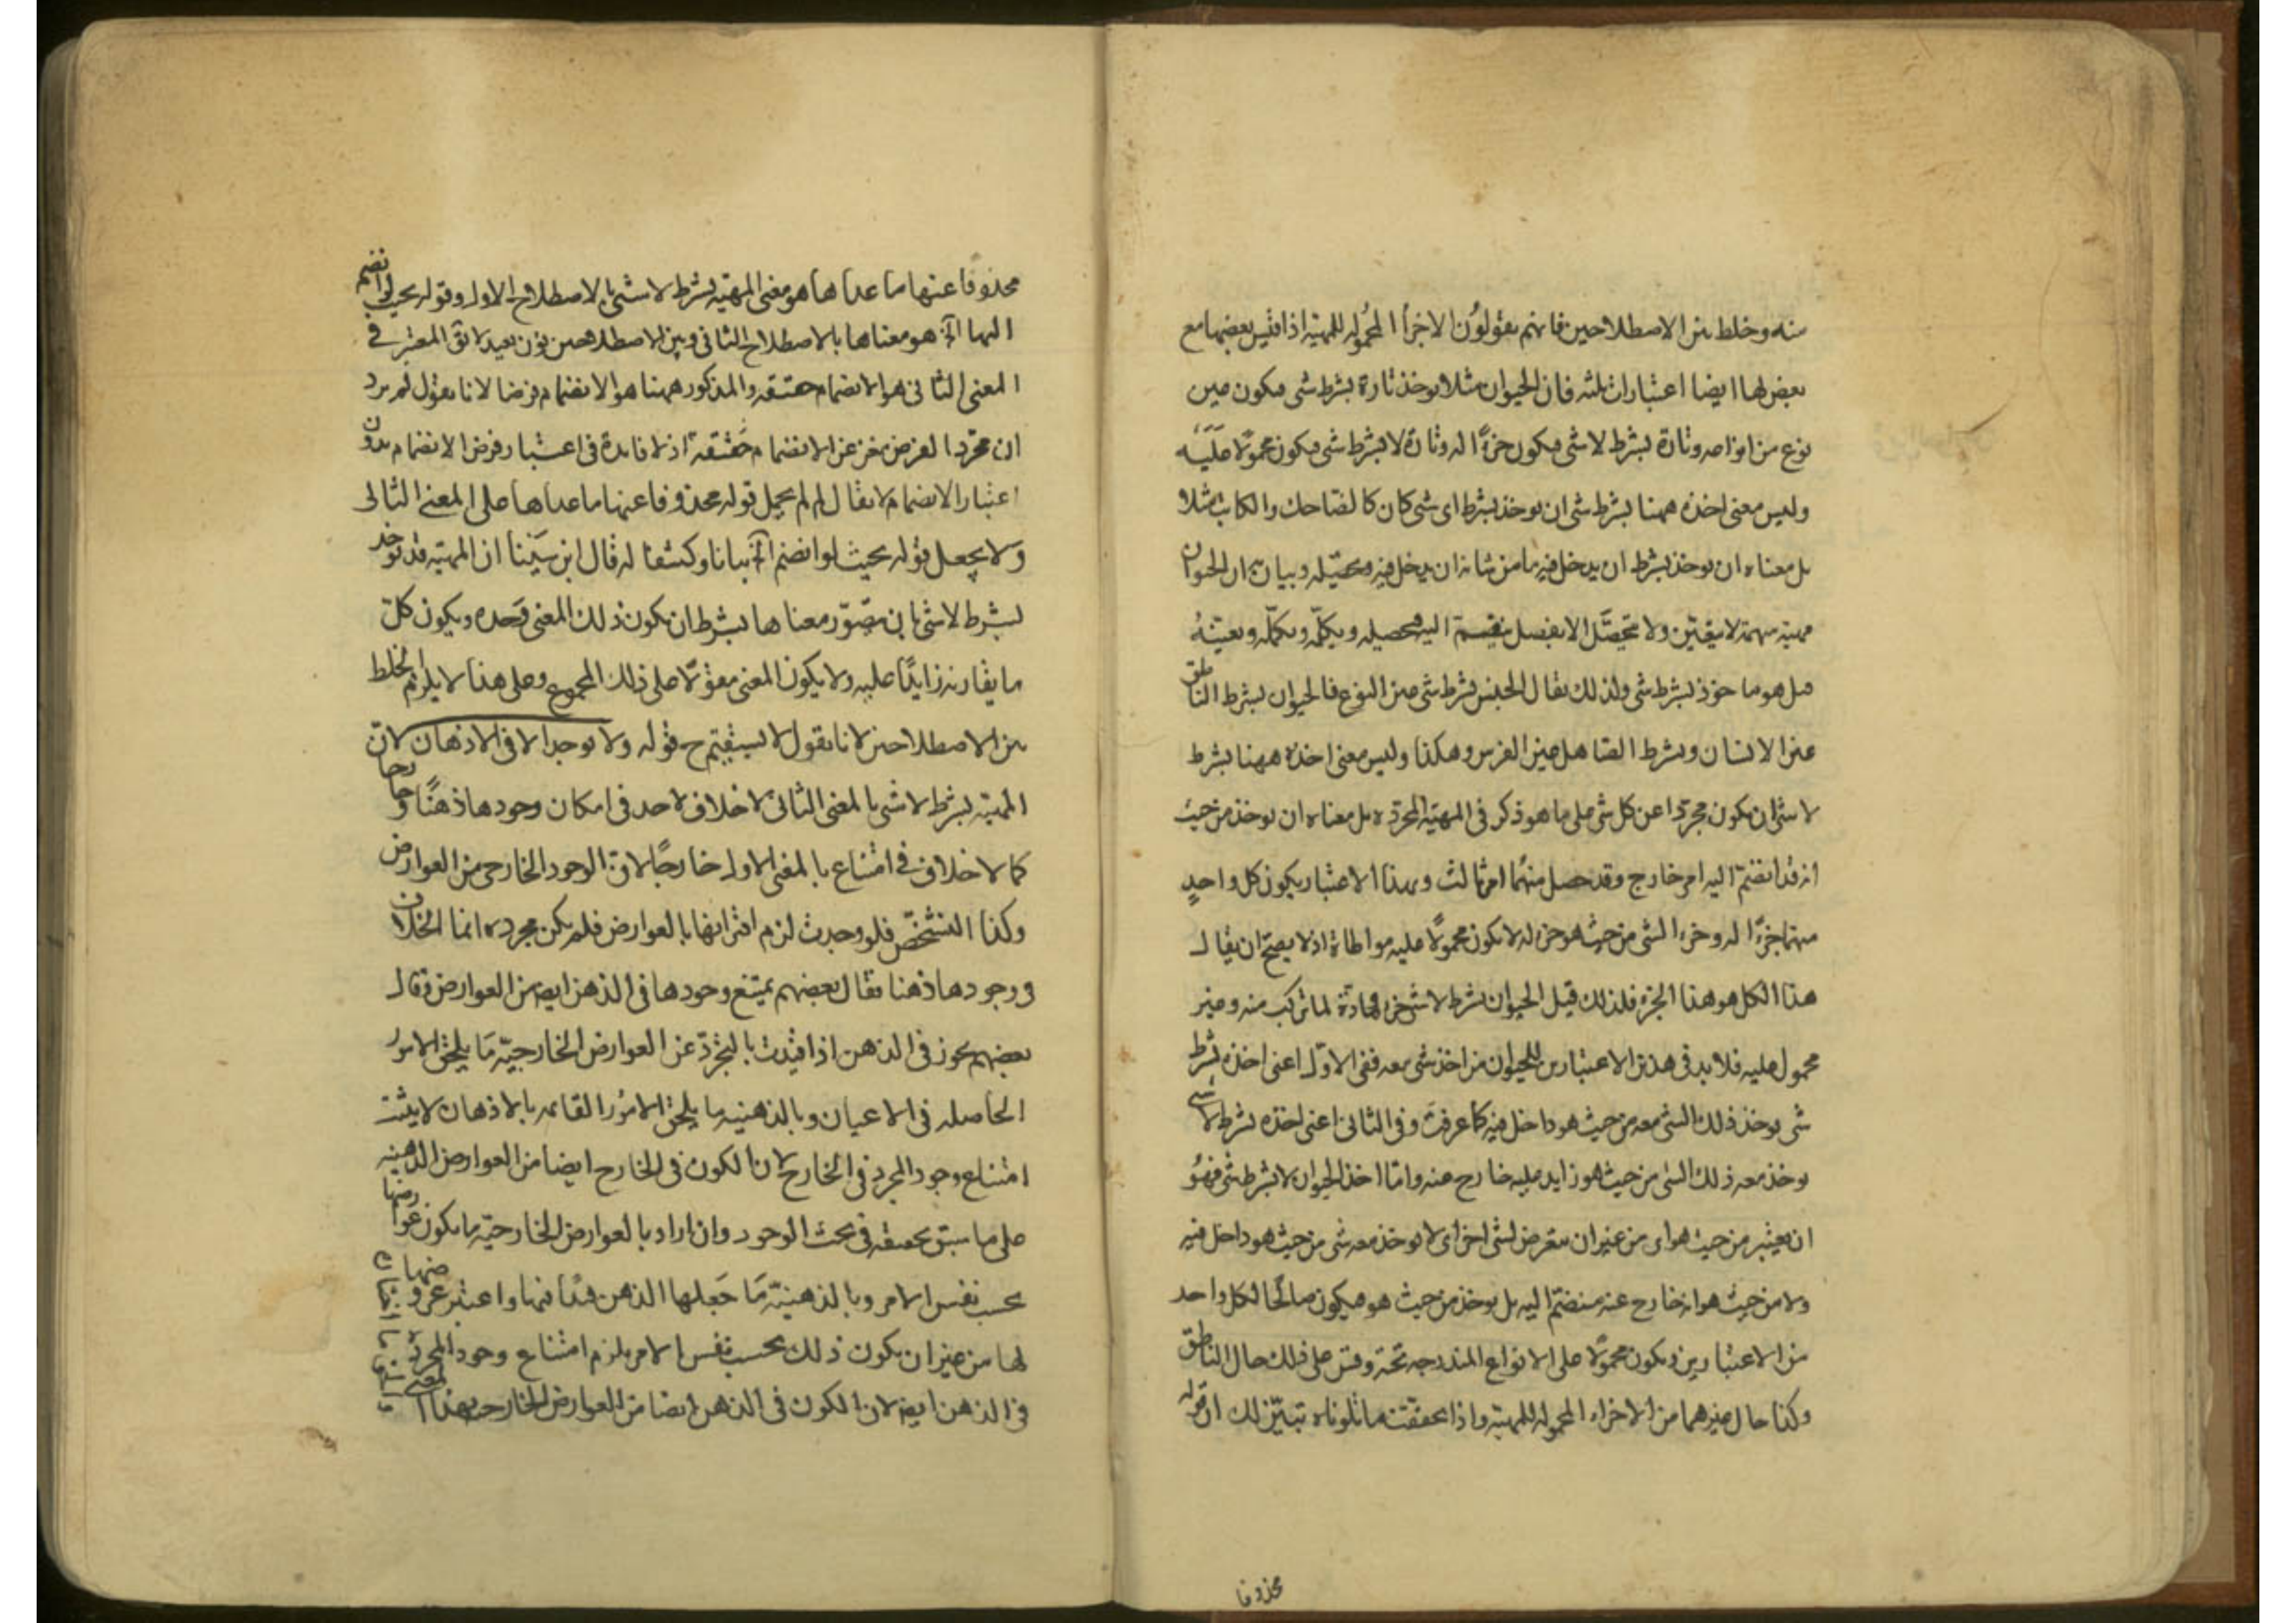 منه وخلط بين الاصطلاحين فانهم يقولون الاجزا المحموله للمهية اذا قيس بعضها مع
بعض لها ايضا اعتبارات ثلثه فان الحيوان مثلا يوخذ تارة بشرط شى فيكون عين
نوع من انواعه وتارة بشرط لا شى فيكون جزءًا له وتارة لا بشرط شى فيكون محمولا عليه
وليس معنى اخذه ههنا بشرط شى ان يوخذ بشرط اى شى كان كالضاحك والكاتب مثلا
بل معناه ان يوخذ بشرط ان يدخل فيه ما من شانه ان يدخل فيه وتحصيله وبيانه ان الحيوان
مهية مبهمة لا يتعين ولا يتحصّل الا بفصل ينقسم اليه فيحصله ويكمّله ويعينهُ
فبل هو ماخوذ بشرط شى ولذلك يقال الجنس بشرط شى عين النوع فالحيوان بشرط الناطق
عين الانسان وبشرط الصاهل عين الفرس وهكذا وليس معنى اخذه ههنا بشرط
لا شى ان يكون مجردا عن كل شى على ما هو ذكر فى المهية المجرده بل معناه ان يوخذ من حيث
انه قد انضمّ اليه امر خارج وقد حصل منهما امر ثالث وبهذا الاعتبار يكون كل واحدٍ
منهما جزءًا له وجزء الشى من حيث هو جزء له لا يكون محمولًا عليه مواطاة اذ لا يصحّ ان يقال
هذا الكل هو هذا الجزء فلذلك قيل الحيوان بشرط لا شى جزء ومادّة لما تركب منه وغير
محمول عليه فلا بد فى هذين الاعتبارين للحيوان من اخذ شى معه ففى الاوّل اعنى اخذه بشرط
شى يوخذ ذلك الشى معه من حيث هو داخل فيه كما عرفت وفى الثانى اعنى اخذه بشرط لا شى
يوخذ معه ذلك الشى من حيث هو زايد عليه خارج عنه واما اخذ الحيوان لا بشرط شى فهُو
ان يعتبر من حيث هو اى من غير ان يتعرض لشى اخر اى لا يوخذ معه شى من حيث هو داخل فيه
ولا من حيث هو انه خارج عنه منضمّ اليه بل يوخذ من حيث هو هو فيكون صالحًا لكل واحد
من الاعتبارين ويكون محمولًا على الانواع المندرجه تحته وقس على ذلك حال الناطق
وكذا حال غيرهما من الاجزاء المحموله للمهية واذا تحققت ما تلوناه تبيّن لك ان قوله
محذوفا
محذوفا عنها ما عداها هو معنى المهية بشرط لا شى بالاصطلاح الاول وقوله بحيث لو انضم
اليها الخ هو معناها بالاصطلاح الثانى وبين الاصطلاحين بون بعيد لا يق المعتبر فى
المعنى الثانى هو الانضمام حقيقه والمذكور ههنا هو الانضمام فرضا لانا نقول لم يرد
ان مجرّد الفرض مغن عن الانضمام حقيقةً اذ لا فايدة فى اعتبار فرض الانضمام بدون
اعتبار الانضمام لا يقال لم لم يحمل قوله محذوفا عنها ما عداها على المعنى الثانى
ولا يجعل قوله بحيث لو انضم الخ بيانا وكشفا له قال ابن سينا ان المهية قد توخد
بشرط لا شى بان يتصوّر معناها بشرط ان يكون ذلك المعنى وحده ويكون كلّ
ما يقارنه زايدًا عليه ولا يكون المعنى مقولًا على ذلك المجموع وعلى هذا لا يلزم الخلط
بين الاصطلاحين لانا نقول لا يستقيم ح قوله ولا توجد الا فى الاذهان لان
المهية بشرط لا شى بالمعنى الثانى لا خلاف لاحد فى امكان وجودها ذهنًا وخارجا
كما لا خلاف فى امتناع بالمعنى الاول خارجًا لان الوجود الخارجى من العوارض
وكذا التشخّص فلو وجدت لزم اقترانها بالعوارض فلم يكن مجرده انما الخلاف
فى وجودها ذهنا فقال بعضهم يمتنع وجودها فى الذهن ايض من العوارض وقال
بعضهم يجوز فى الذهن اذا قيدت بالتجرّد عن العوارض الخارجيّه مَا يلحق الامور
الحاصله فى الاعيان وبالذهنيه ما يلحق الامُور القائمه بالاذهان لا يثبت
امتناع وجود المجرد فى الخارج لان الكون فى الخارج ايضا من العوارض الذهنيه
على ما سبق تحقيقه فى بحث الوجود وان اراد بالعوارض الخارجيّه ما يكون عوارضها
بحسب نفس الامر وبالذهنيّه مَا جَعلها الذهن قيدًا فيها واعتبر عروضها
لها من غير ان يكون ذلك بحسب نفس الامر يلزم امتناع وجود المجرده
فى الذهن ايض لان الكون فى الذهن ايضا من العوارض الخارجيه بهذا المعنى